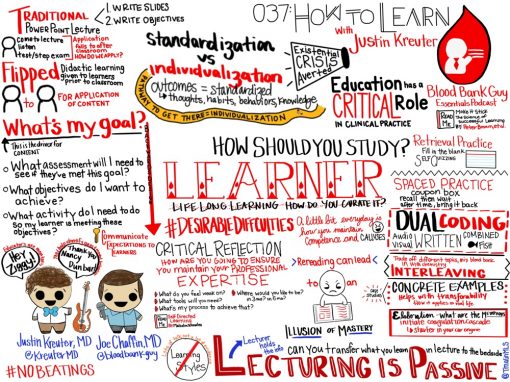 TRADITIONAL
PowerPoint Lecture
1. WRITE SLIDES
2. WRITE OBJECTIVES
come to lecture
listen
test/step exam
Application
falls to after
classroom
HOW DO WE APPLY?
Flipped
Didactic learning
given to learners
prior to classroom
to
to
FOR APPLICATION
OF CONTENT
What's my goal?
This is the driver for
CONTENT
What assessment will I need to
see if they've met this goal?
What objectives do I want to
achieve?
What activity do I need to do
so my learner is meeting these
objectives?
Communicate
EXPECTATIONS TO
LEARNERS
HEY
ZIGGY!
Thank you
Nancy
Dunbar!
Justin Kreuter, MD
@KreuterMD
Joe Chaffin, MD
@bloodbankguy
#NOBEATINGS
037: HOW TO LEARN
With
Justin Kreuter
standardization
vs
individualization
outcomes = standardized
thoughts, habits, behaviors, knowledge
PATHWAY TO GET THERE = INDIVIDUALIZATION
Existential
CRISIS
Averted
Education has a
CRITICAL Role
IN CLINICAL PRACTICE
Blood Bank Guy
Essentials Podcast
READ
ME
MAKE IT STICK
the science of
successful learning
by Peter Brown, et al.
HOW SHOULD YOU STUDY?
LEARNER
LIFE LONG LEARNING HOW DO YOU CURATE IT?
#DESIRABLE DIFFICULTIES
A little bit everyday is
how you maintain
competence and CALLUSES
CRITICAL REFLECTION
HOW ARE YOU GOING TO ENSURE
YOU MAINTAIN YOUR PROFESSIONAL
EXPERTISE
What do you feel weak on?
What tools will you need?
What's my process to achieve that?
Where would you like to be
READ
ME
Self Directed
Learning
Learning
Styles
rereading can lead
to
ILLUSION OF MASTERY
Retrieval Practice
Fill in the blank
SELF QUIZZING
SPACED PRACTICE
coupon box
recall then wait
over time, bring it back
DUAL CODING!
Audio
Visual
WRITTEN
COMBINED
INTERLEAVING
CONCRETE EXAMPLES
Helps with transferability
Elaboration - what are the
initiate coagulation cascade
→ starter in your car analogy
Lecturer
holds the
info
can you transfer what you learn in lecture to the bedside?
LECTURING IS PASSIVE